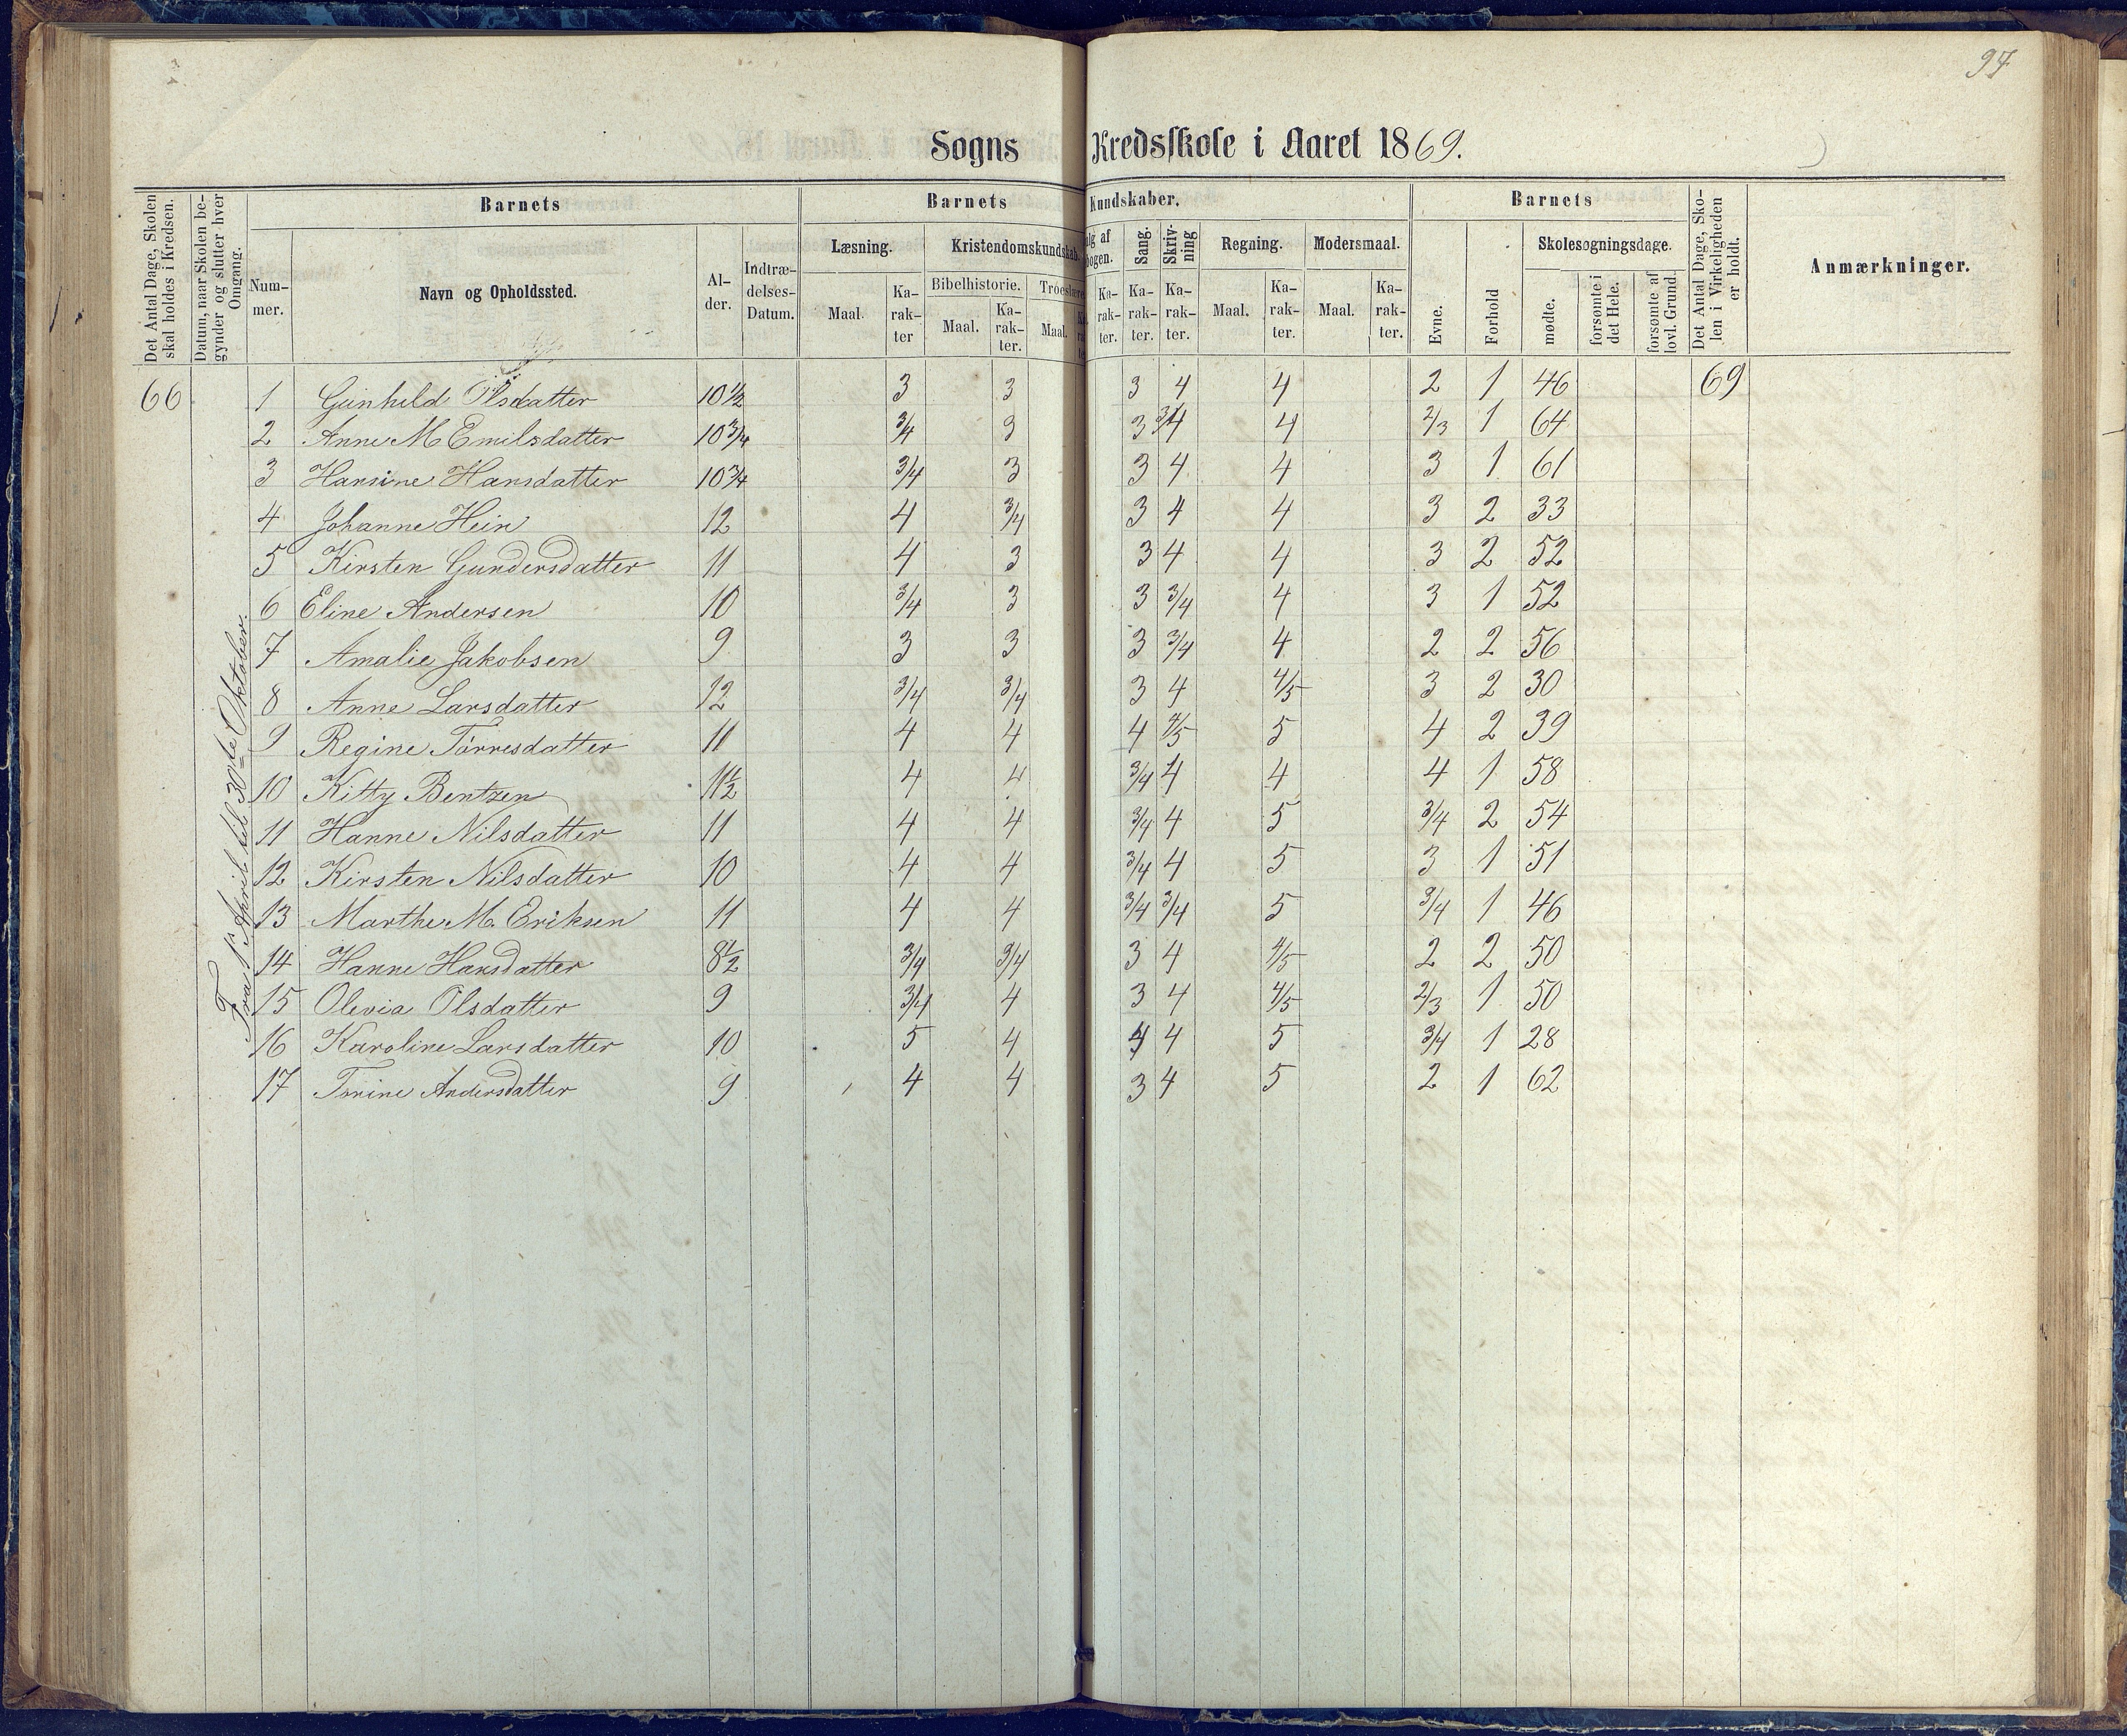 97
Sogns Kredsskole i Aaret 1869.
Det Antal Dage, Skolen skal holdes i Kredsen.
Datum, naar Skolen begynder og slutter hver Omgang.
Barnets
Nummer.
Navn og Opholdssted.
Alder.
Indtrædelses-Datum.
Barnets Kundskaber.
Læsning.
Maal.
Karakter
Kristendomskundskab.
Bibelhistorie.
Maal.
Karakter.
Troeslære
Maal.
lg af
bogen.
Karakter.
Sang.
Karakter.
Skrivning
Karakter.
Regning.
Maal.
Karakter.
Modersmaal.
Maal.
Karakter.
Barnets
Evne.
Forhold
Skolesøgningsdage.
mødte.
forsømte i det Hele.
forsømte af lovl. Grund
Det Antal Dage, Skolen i Virkeligheden er holdt.
Anmærkninger.
Fra 1ste April til 30te Oktober.
66 1 Gunhild Olsdatter 10 1/2 3 3 3 4 4 2 1 46 69
2 Anne M Emilsdatter 10 3/4 3/4 3 3 3/4 4 2/3 1 64
3 Hansine Hansdatter 10 3/4 3/4 3 3 4 4 3 1 61
4 Johanne Hein 12 4 3/4 3 4 4 3 2 33
5 Kirsten Gundersdatter 11 4 3 3 4 4 3 2 52
6 Eline Andersen 10 3/4 3 3 3/4 4 3 1 52
7 Amalie Jakobsen 9 3 3 3 3/4 4 2 2 56
8 Anne Larsdatter 12 3/4 3/4 3 4 4/5 3 2 30
9 Regine Tørresdatter 11 4 4 4 4/5 5 4 2 39
10 Kitty Bentzen 11 1/2 4 4 3/4 4 4 4 1 58
11 Hanne Nilsdatter 11 4 4 3/4 4 5 3/4 2 54
12 Kirsten Nilsdatter 10 4 4 3/4 4 5 3 1 51
13 Marthe M. Eriksen 11 4 4 3/4 3/4 5 3/4 1 46
14 Hanne Hansdatter 8 1/2 3/4 3/4 3 4 4/5 2 2 50
15 Olevia Olsdatter 9 3/4 4 3 4 4/5 2/3 1 50
16 Karoline Larsdatter 10 5 4 4 4 5 3/4 1 28
17 Tomine Andersdatter 9 4 4 3 4 5 2 1 62